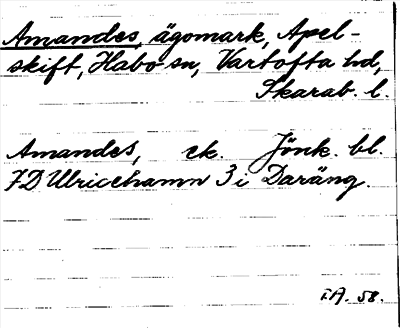 Amandes, ägomark, Apel-
skift, Habo sn, Vartofta hd,
Skarab. l.
Amandes, ek. Jönk. bl.
7D Ulricehamn 3 i Daräng.
IA. 58.